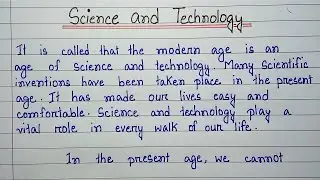 Science and Technology
It is called that the modern age is an
age of science and technology. Many Scientific
inventions have been taken place in the present
age. It has made our lives easy and
comfortable. Science and technology play a
vital role in every walk of our life.
In the present age, we cannot